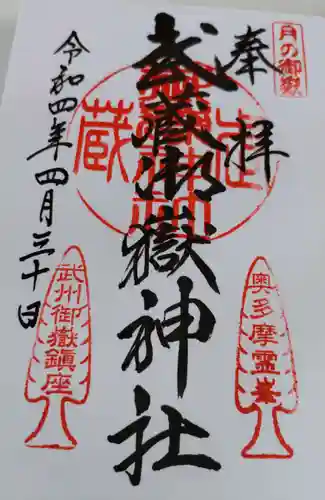 月の御嶽
奉拝
奥多摩霊峯
武蔵御嶽神社
令和四年四月三十日
武州御嶽鎮座